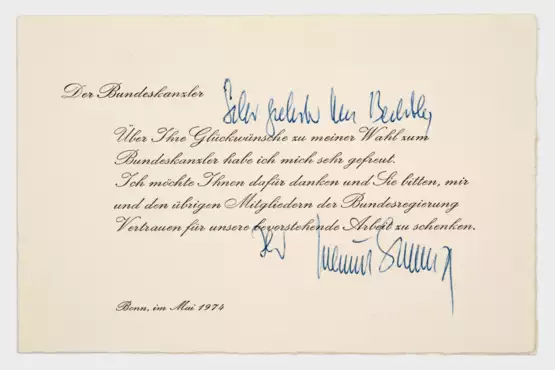 Der Bundeskanzler
Sehr geehrter Herr
Über Ihre Glückwünsche zu meiner Wahl zum
Bundeskanzler habe ich mich sehr gefreut.
Ich möchte Ihnen dafür danken und Sie bitten, mir
und den übrigen Mitgliedern der Bundesregierung
Vertrauen für unsere bevorstehende Arbeit zu schenken.
Ihr Helmut Schmidt
Bonn, im Mai 1974